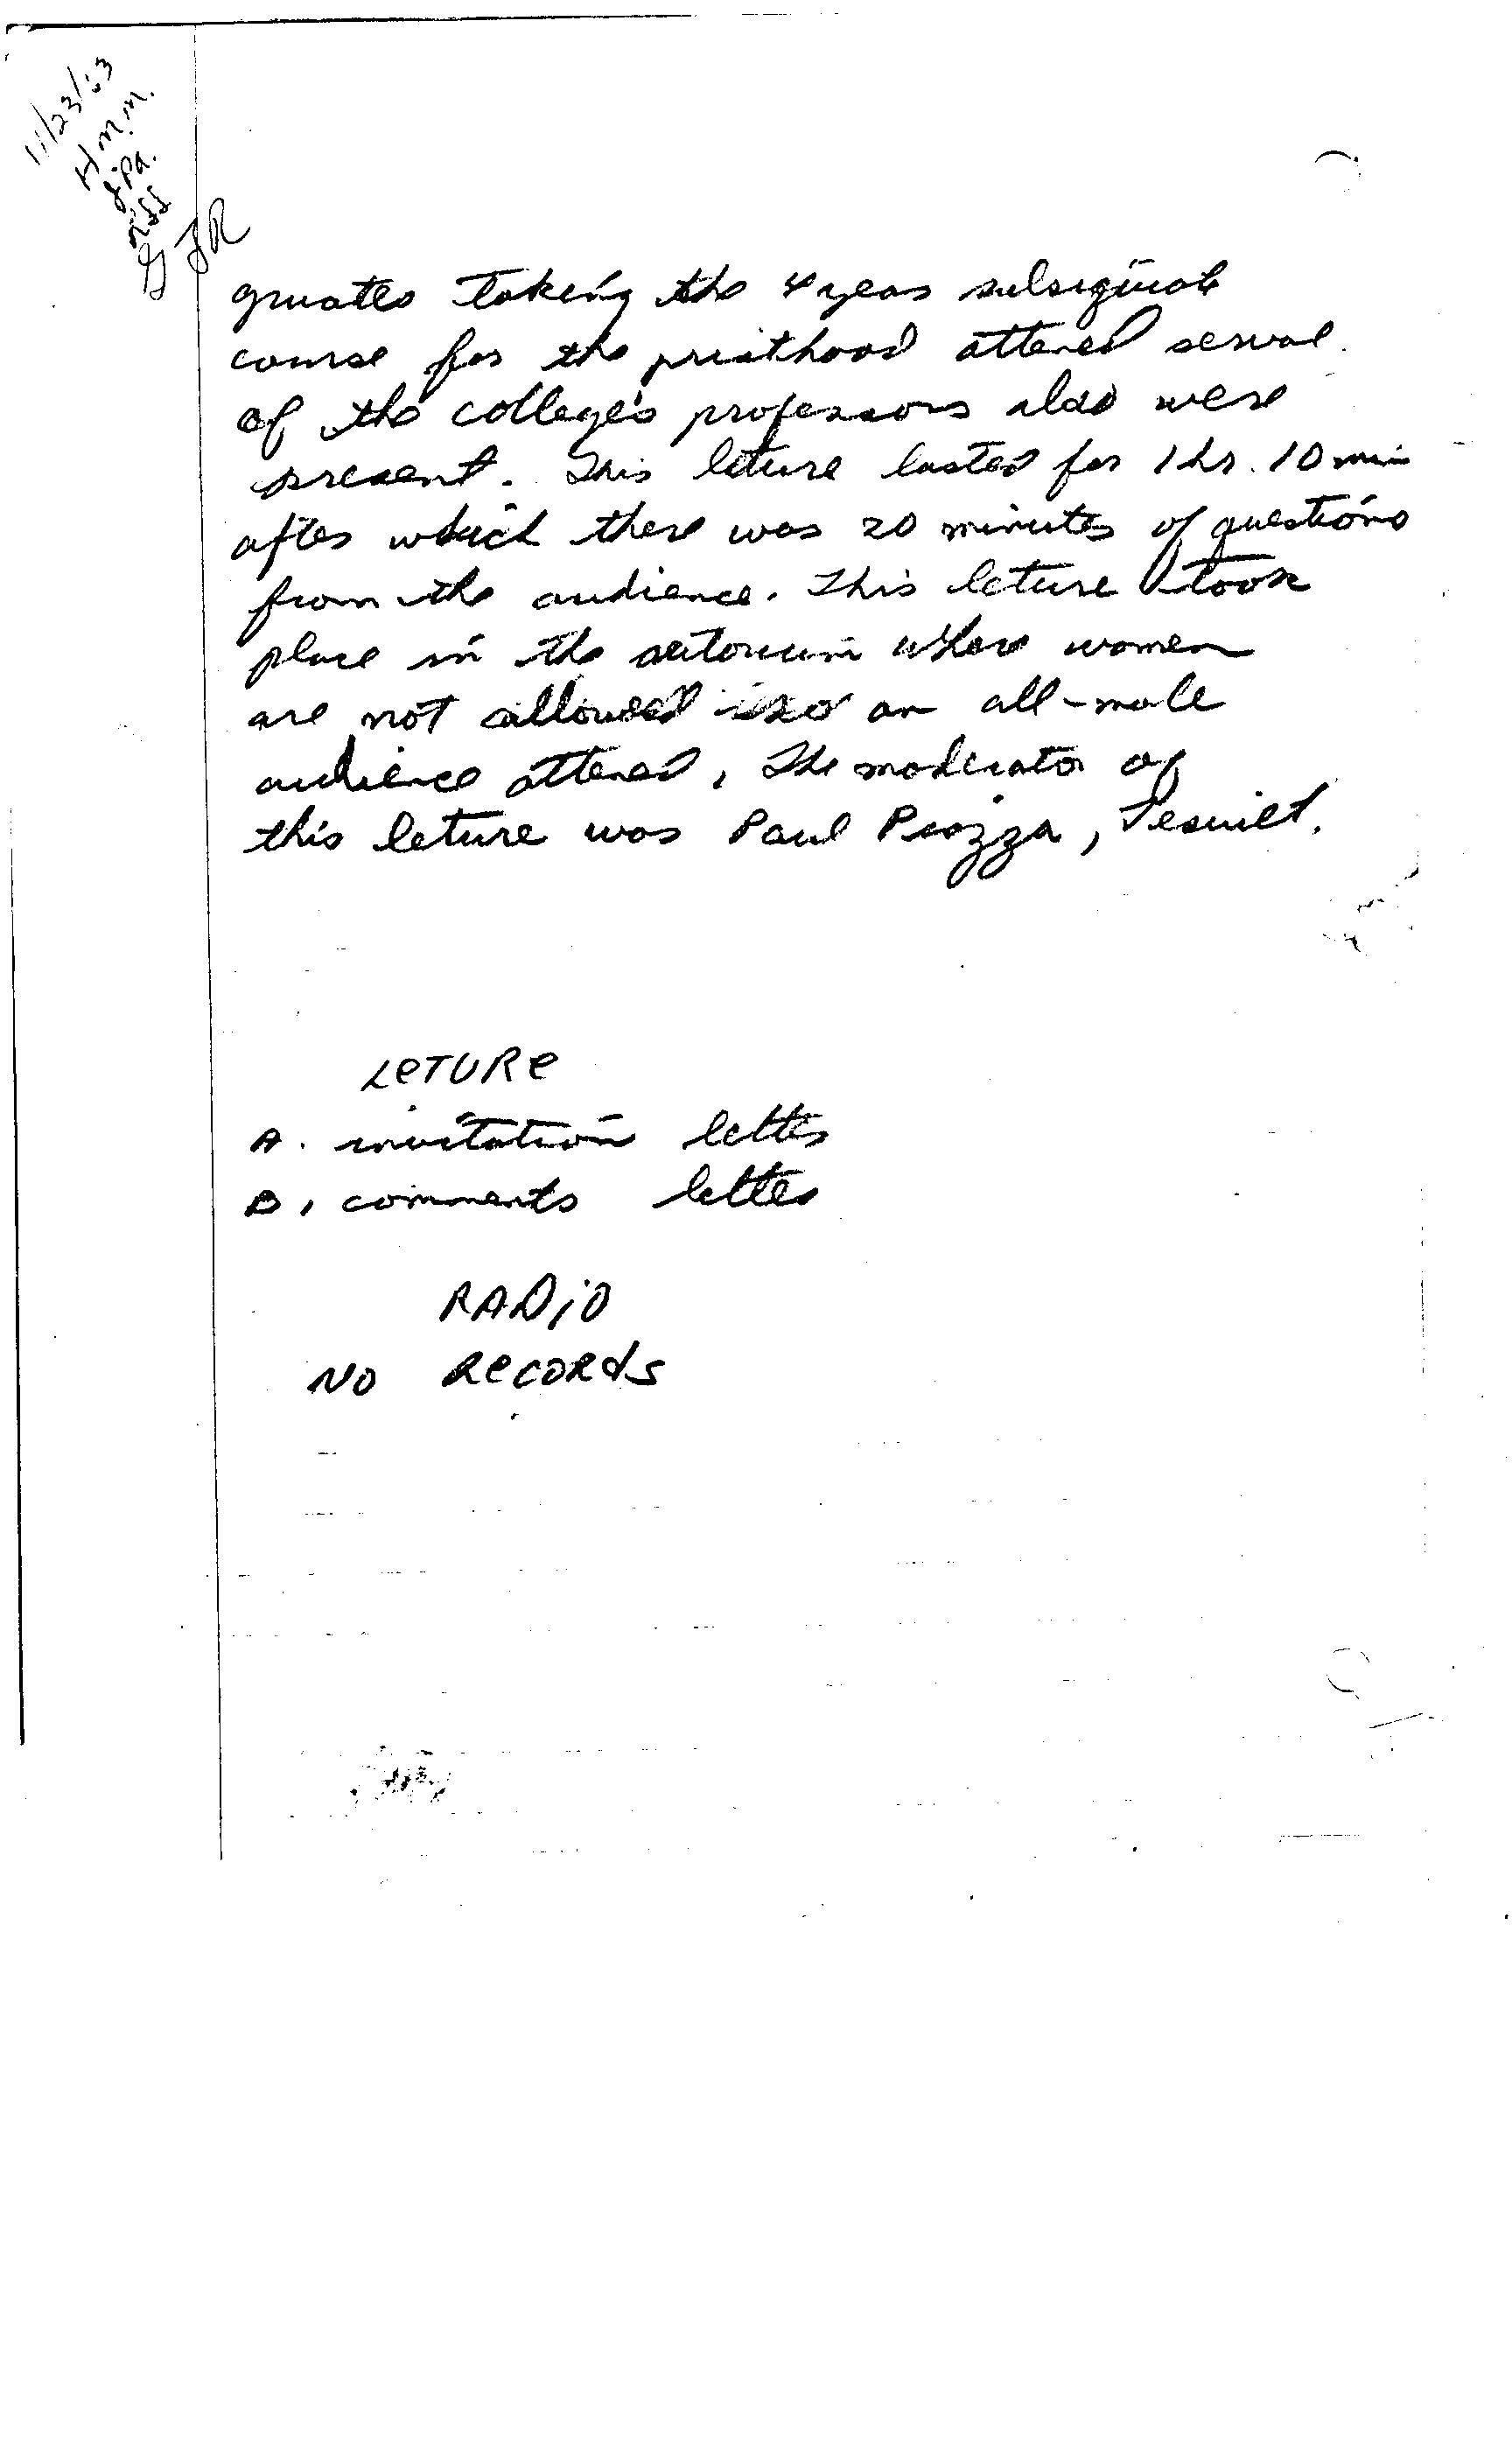 11/23/63
H.M.M.
GFR
gruates taking the 4 year
course for the priesthood attened serval
of the college's professors also were
present. This leture lasted for 1 hr. 10 min
after which there was 20 minutes of questions
from the audience. This leture took
place in the autorium where women
are not allowed so an all-male
audience attened, The moderator of
this leture was Paul Piazza, Jesuiet.
LeTURe
A. invitation letter
B, comments letter
RADiO
NO RecoRds